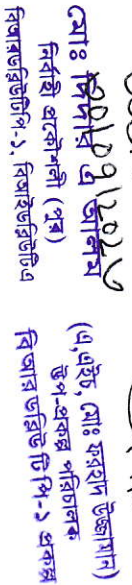 মোঃ দিদার এ আলম
নির্বাহী প্রকৌশলী (পুর)
বিআরডব্লিউটিপি-১, বিআইডব্লিউটিএ
(এ,এইচ, মোঃ ফরহাদ উজ্জামান)
উপ-প্রকল্প পরিচালক
বিআর ডব্লিউ টি পি-১ প্রকল্প